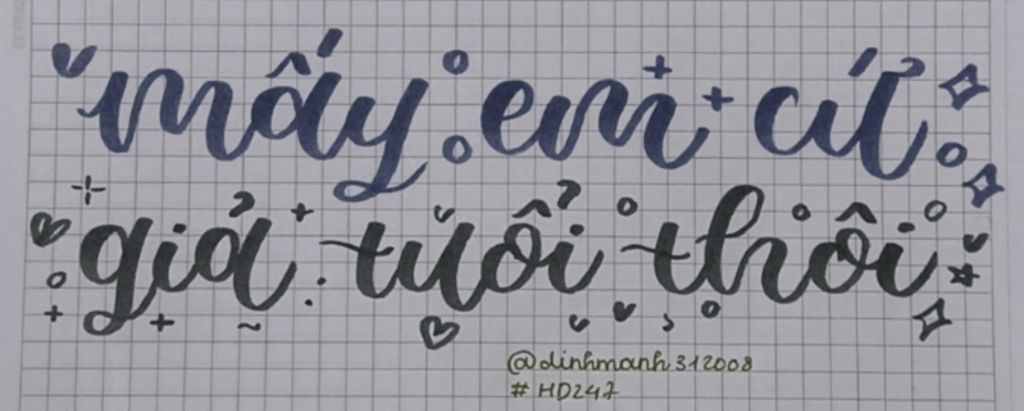 mấy em cứ
giả tuổi thôi
@dinhmanh312008
#HD247